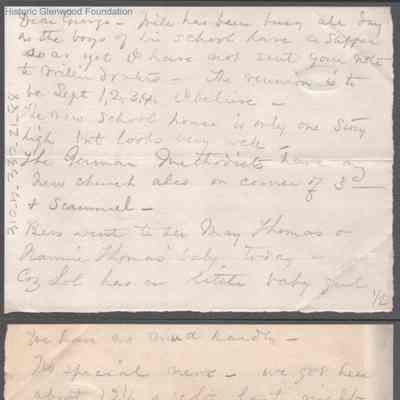 Historic Glerwood Foundation
Dear George - Will has been busy all day
as the boys of his school have a Supper
so as yet I have not sent your note
to - The reunion is to
be Sept 1, 2, 3, 4, I believe -
The new School house is only one Story
high but looks very well -
The German Methodists have a
New church also on corner of 3
& Scammel -
Bess went to see May Thomas or
Nannie Thomas' baby today -
Coz Lot has a little baby girl
1/2
We have no mud hardly -
No special news - we got here
about last night